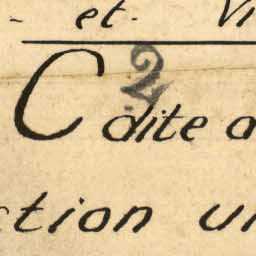 - et. Vi
2
C dite a
ction un